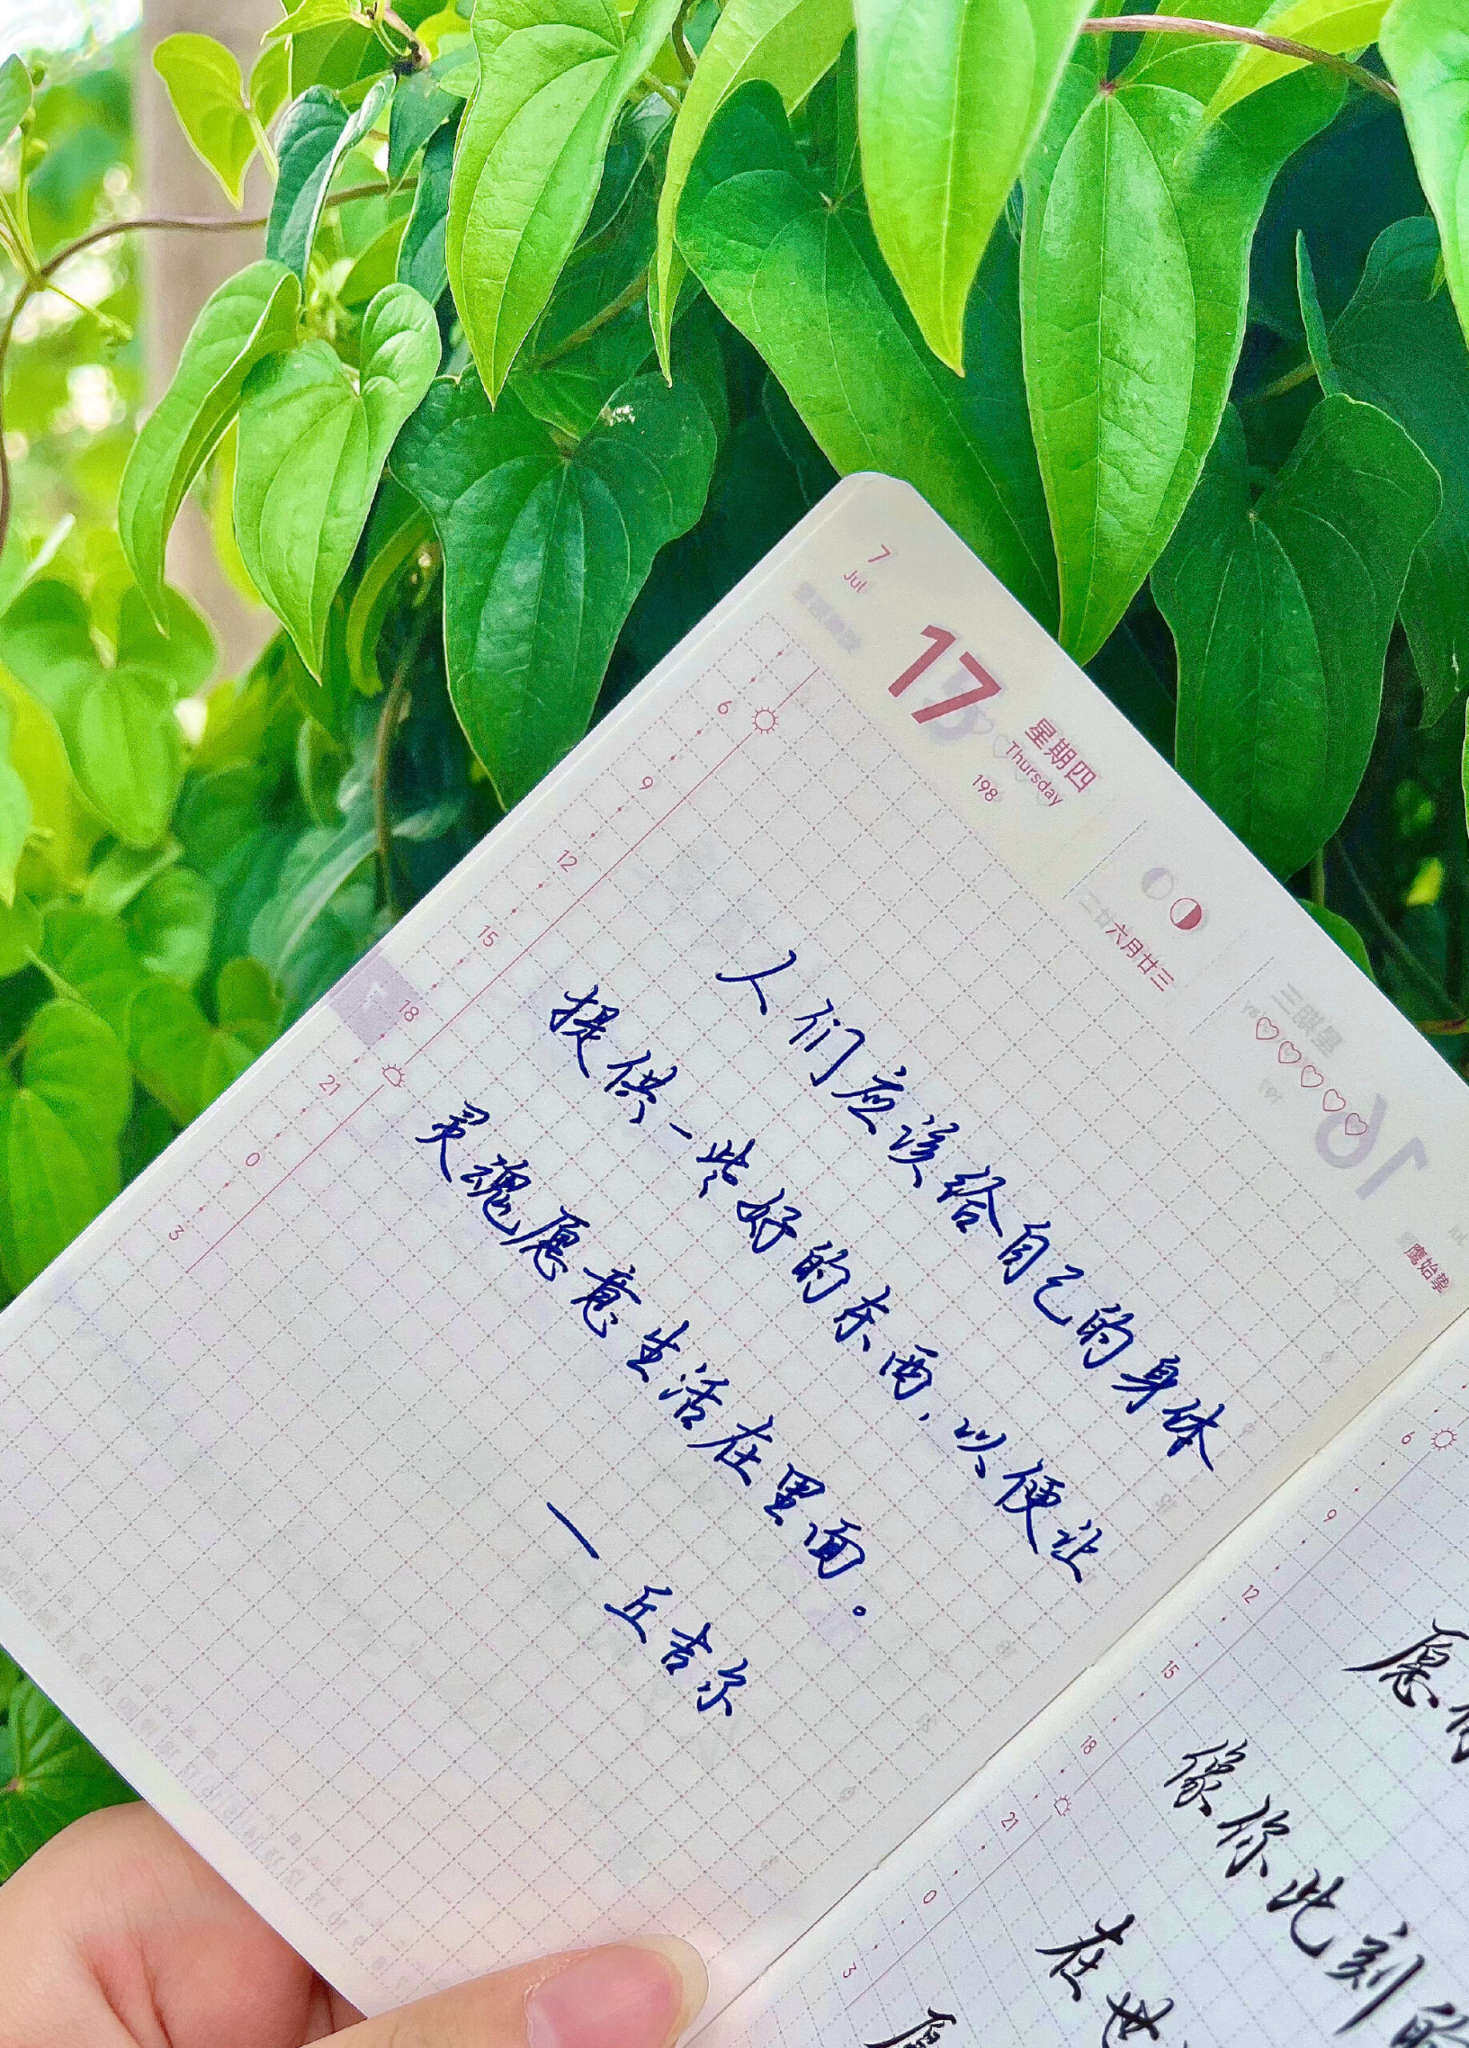 7
Jul
17
星期四
Thursday
198
六月廿三
鹰始挚
6
9
12
15
18
21
0
3
人们应该给自己的身体
提供一些好的东西,以便让
灵魂愿意生活在里面。
— 丘吉尔
6
9
12
15
18
21
0
3
愿
像你此刻的
在世
愿